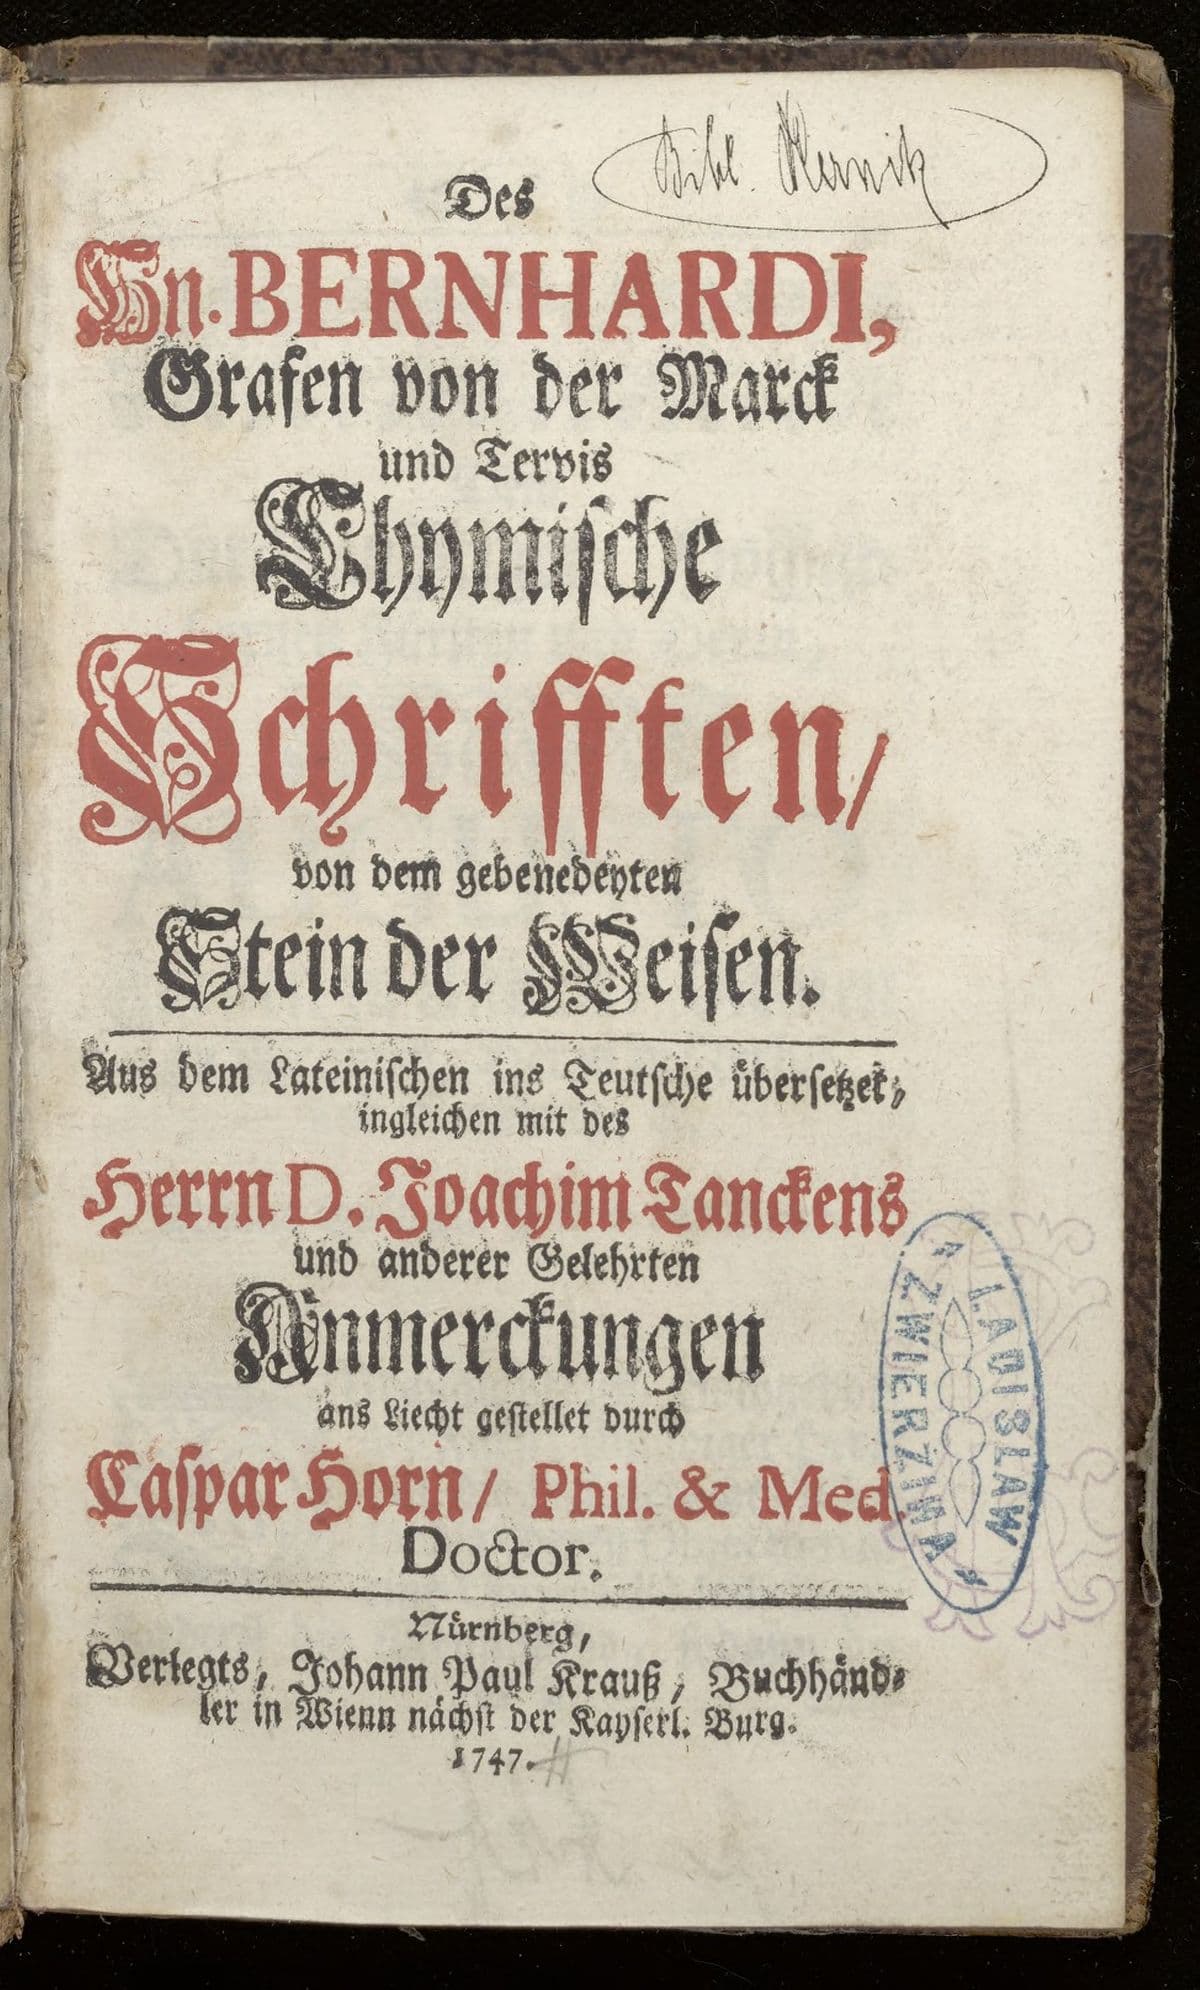 Bibl.
Des
Hn. BERNHARDI,
Grafen von der Marck
und Tervis
Chymische
Schrifften/
von dem gebenedeyten
Stein der Weisen.
Aus dem Lateinischen ins Teutsche übersetzet,
ingleichen mit des
Herrn D. Joachim Tanckens
und anderer Gelehrten
Anmerckungen
ans Liecht gestellet durch
Caspar Horn/ Phil. & Med.
Doctor.
Nürnberg,
Verlegts, Johann Paul Krauß, Buchhänd-
ler in Wienn nächst der Kayserl. Burg.
1747.
LADISLAW
ZWIERZINA